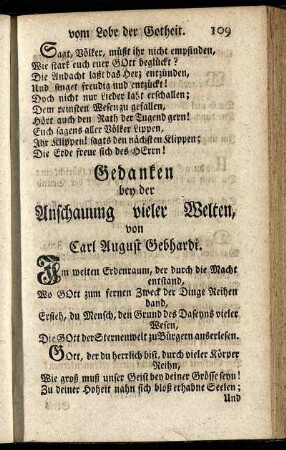 vom Lobe der Gotheit. 109
Sagt, Völker, müßt ihr nicht empfinden,
Wie starck euch euer GOtt beglückt?
Die Andacht laßt das Herz entzünden,
Und singet freudig und entzückt!
Doch nicht nur Lieder laßt erschallen;
Dem reinsten Wesen zu gefallen,
Hört auch den Rath der Tugend gern!
Euch sagens aller Völker Lippen,
Ihr Klippen! sagts den nächsten Klippen;
Die Erde freue sich des HErrn!
Gedanken
bey der
Anschauung vieler Welten,
von
Carl August Gebhardi.
Im weiten Erdenraum, der durch die Macht
entstand,
Wo GOtt zum fernen Zweck der Dinge Reihen
band,
Ersieh, du Mensch, den Grund des Daseyns vieler
Wesen,
Die GOtt der Sternenwelt zu Bürgern auserlesen.
GOtt, der du herrlich bist, durch vieler Körper
Reihn,
Wie groß muß unser Geist bey deiner Grösse seyn!
Zu deiner Hoheit nahn sich bloß erhabne Seelen;
Und